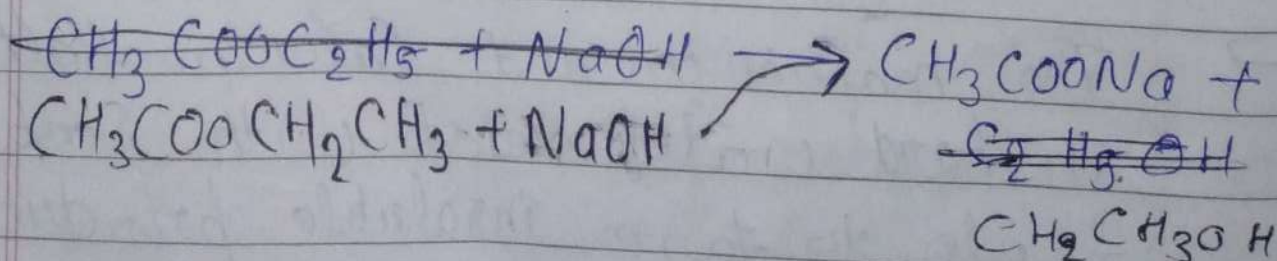 CH₃COOC₂H₅ + NaOH → CH₃COONa +
CH₃COOCH₂CH₃ + NaOH
C₂H₅OH
CH₂CH₃OH